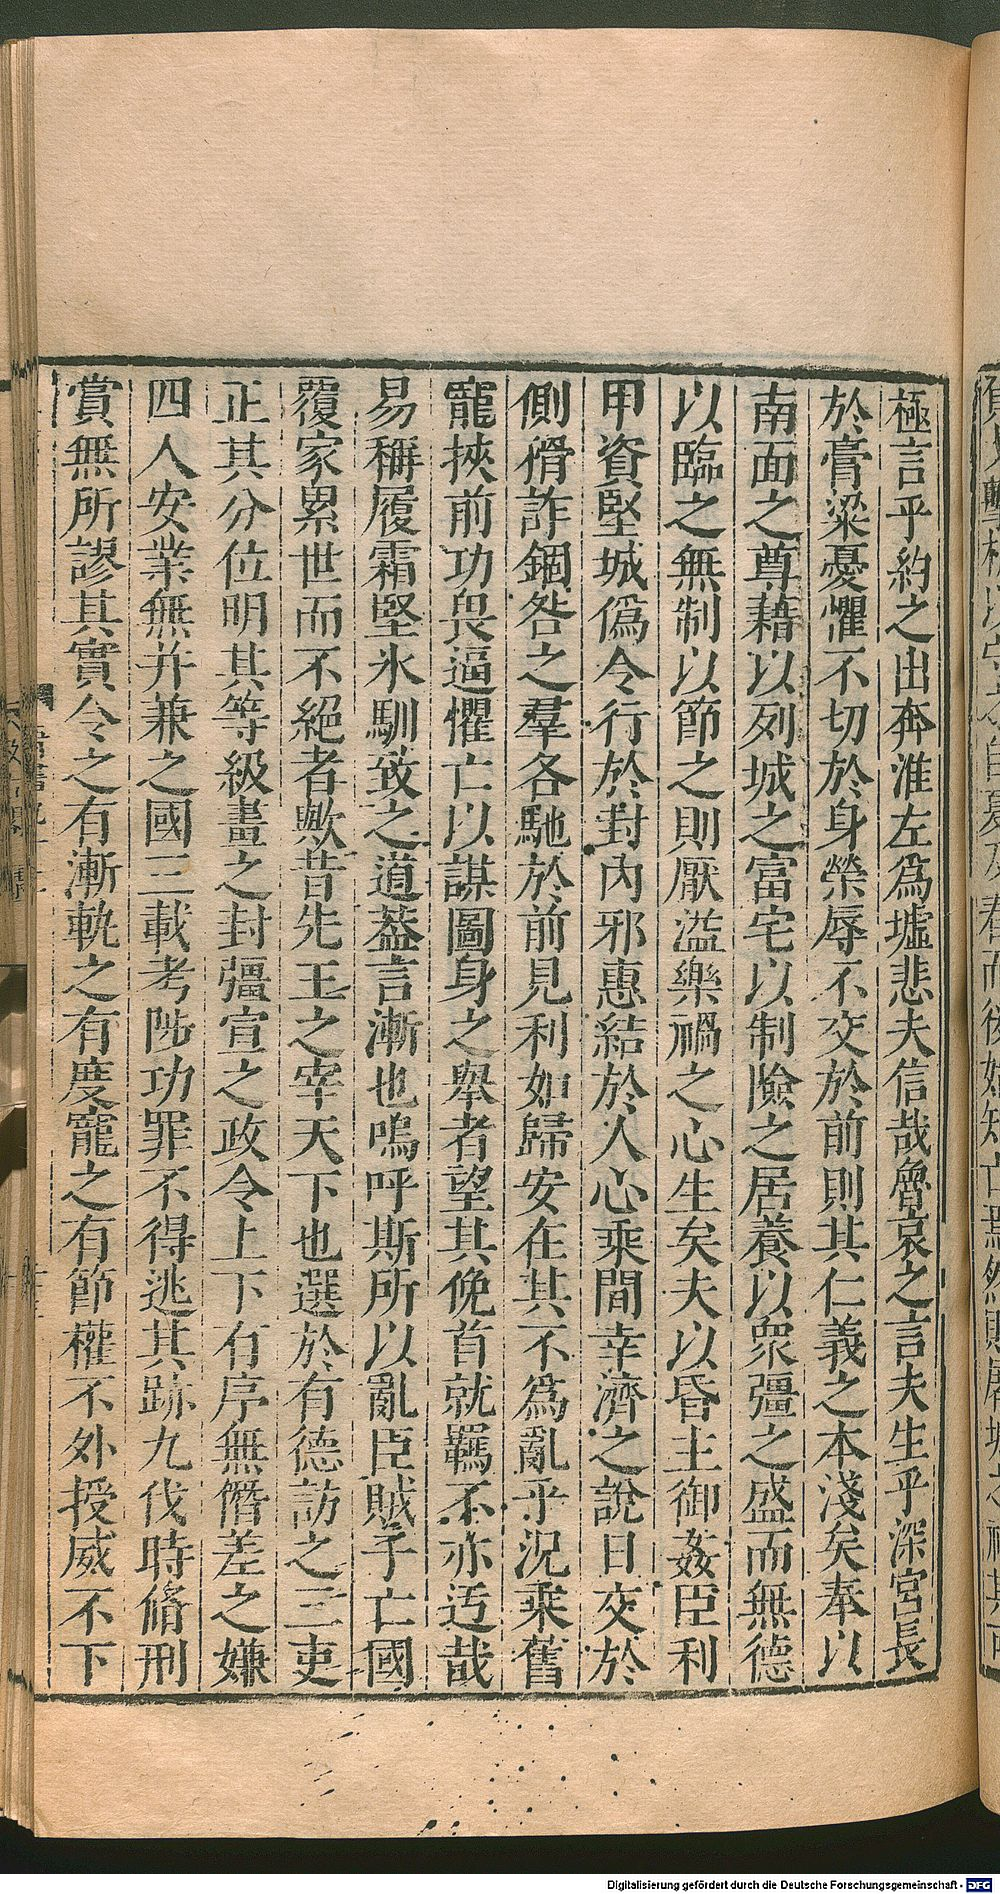 極言乎約之出奔淮左爲墟悲夫信哉魯哀之言夫生乎深宮長
於膏粱憂懼不切於身榮辱不交於前則其仁義之本淺矣奉以
南面之尊藉以列城之富宅以制險之居養以衆彊之盛而無德
以臨之無制以節之則厭溢樂禍之心生矣夫以昏主御姦臣利
甲資堅城僞令行於封內邪惠結於人心乘間幸濟之說日交於
側猾詐錮咎之羣各馳於前見利如歸安在其不爲亂乎況乘舊
寵挾前功畏逼懼亡以謀圖身之舉者望其俛首就羈不亦迃哉
易稱履霜堅氷馴致之道葢言漸也嗚呼斯所以亂臣賊子亡國
覆家累世而不絕者歟昔先王之宰天下也選於有德訪之三吏
正其分位明其等級畫之封彊宣之政令上下有序無僭差之嫌
四人安業無并兼之國三載考陟功罪不得逃其跡九伐時脩刑
賞無所謬其實令之有漸軌之有度寵之有節權不外授威不下
Digitalisierung gefördert durch die Deutsche Forschungsgemeinschaft - DFG